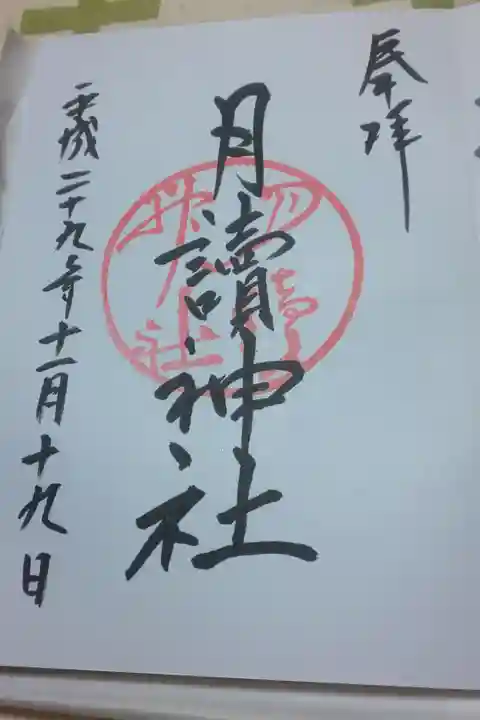 奉拝
月讀神社
平成二十九年十一月十九日